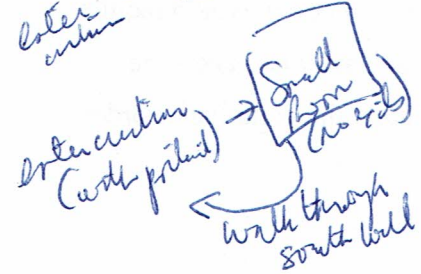 enter
curtain
enter curtain
(with
Small
Room
(no exits)
walk through
south wall